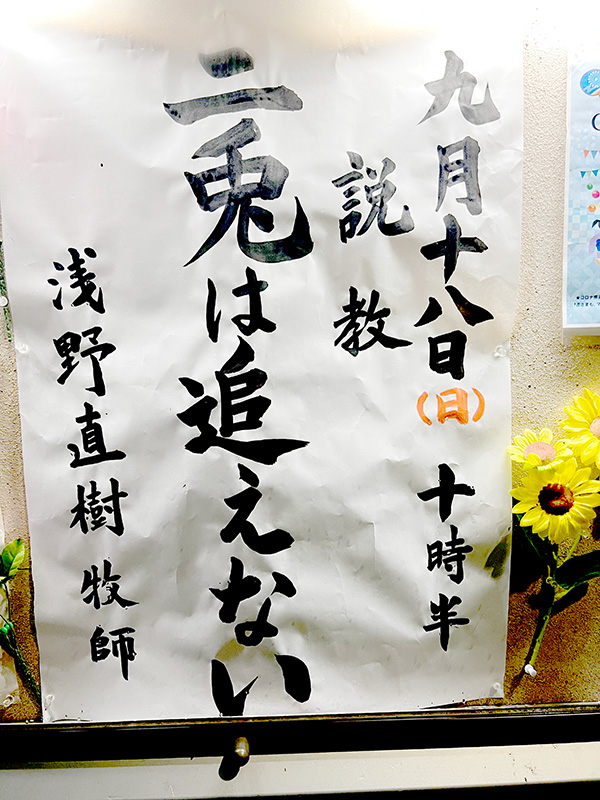 九月十八日（日） 十時半
説教
二兎は追えない
浅野直樹 牧師